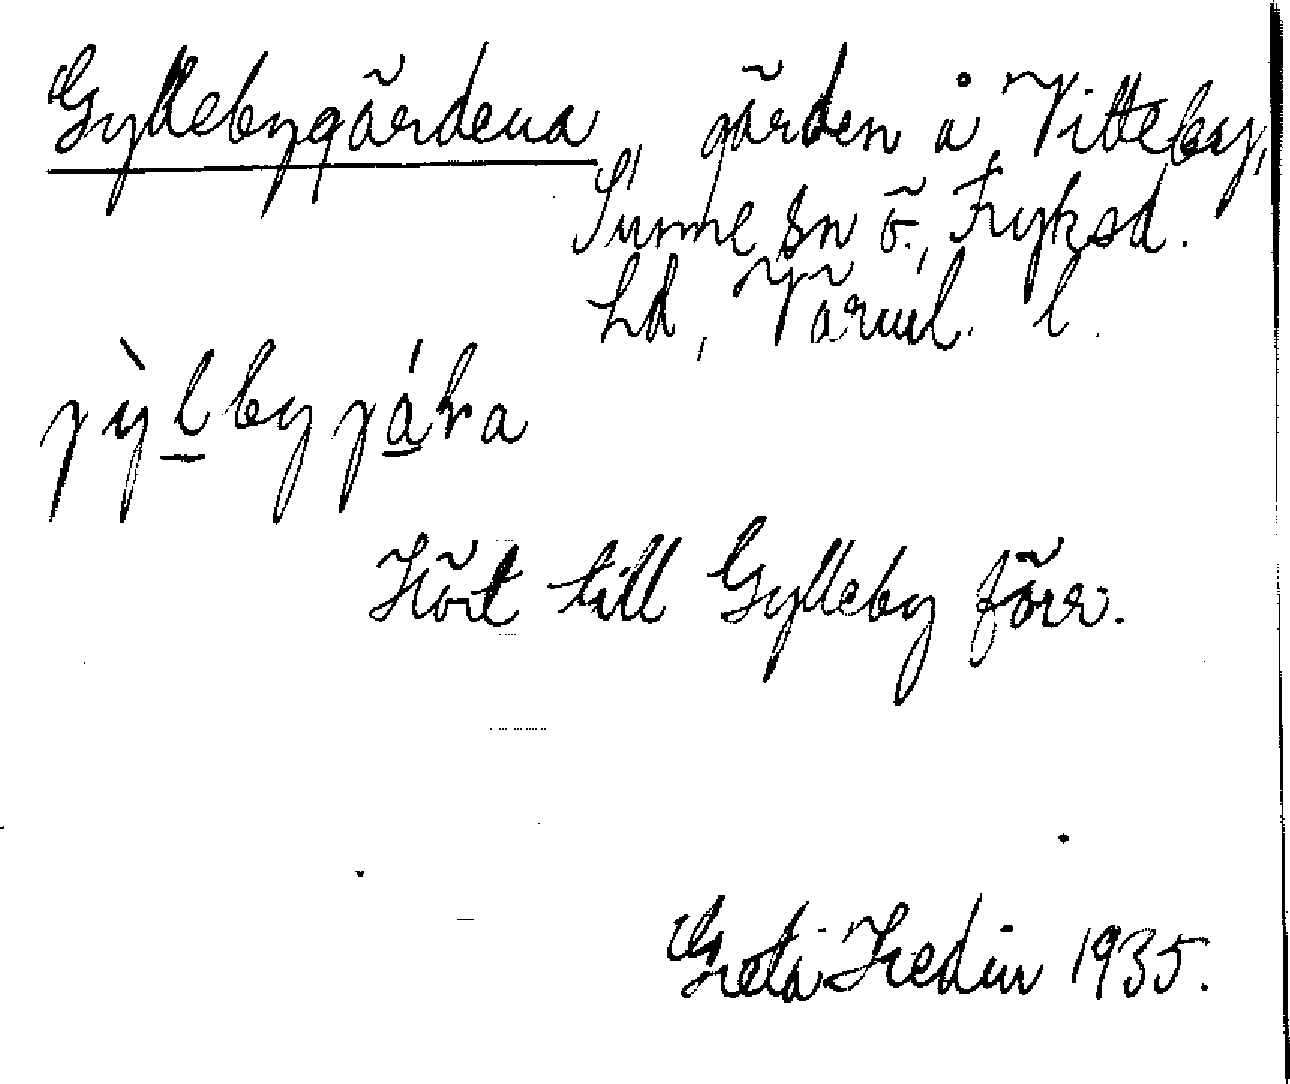 Gyllebygärdena, gärden å Vitteby,
Sunne sn ö., Fryksd.
hd, Värml. l.
jỳlbyjára
Hört till Gylleby förr.
Greta Hedin 1935.